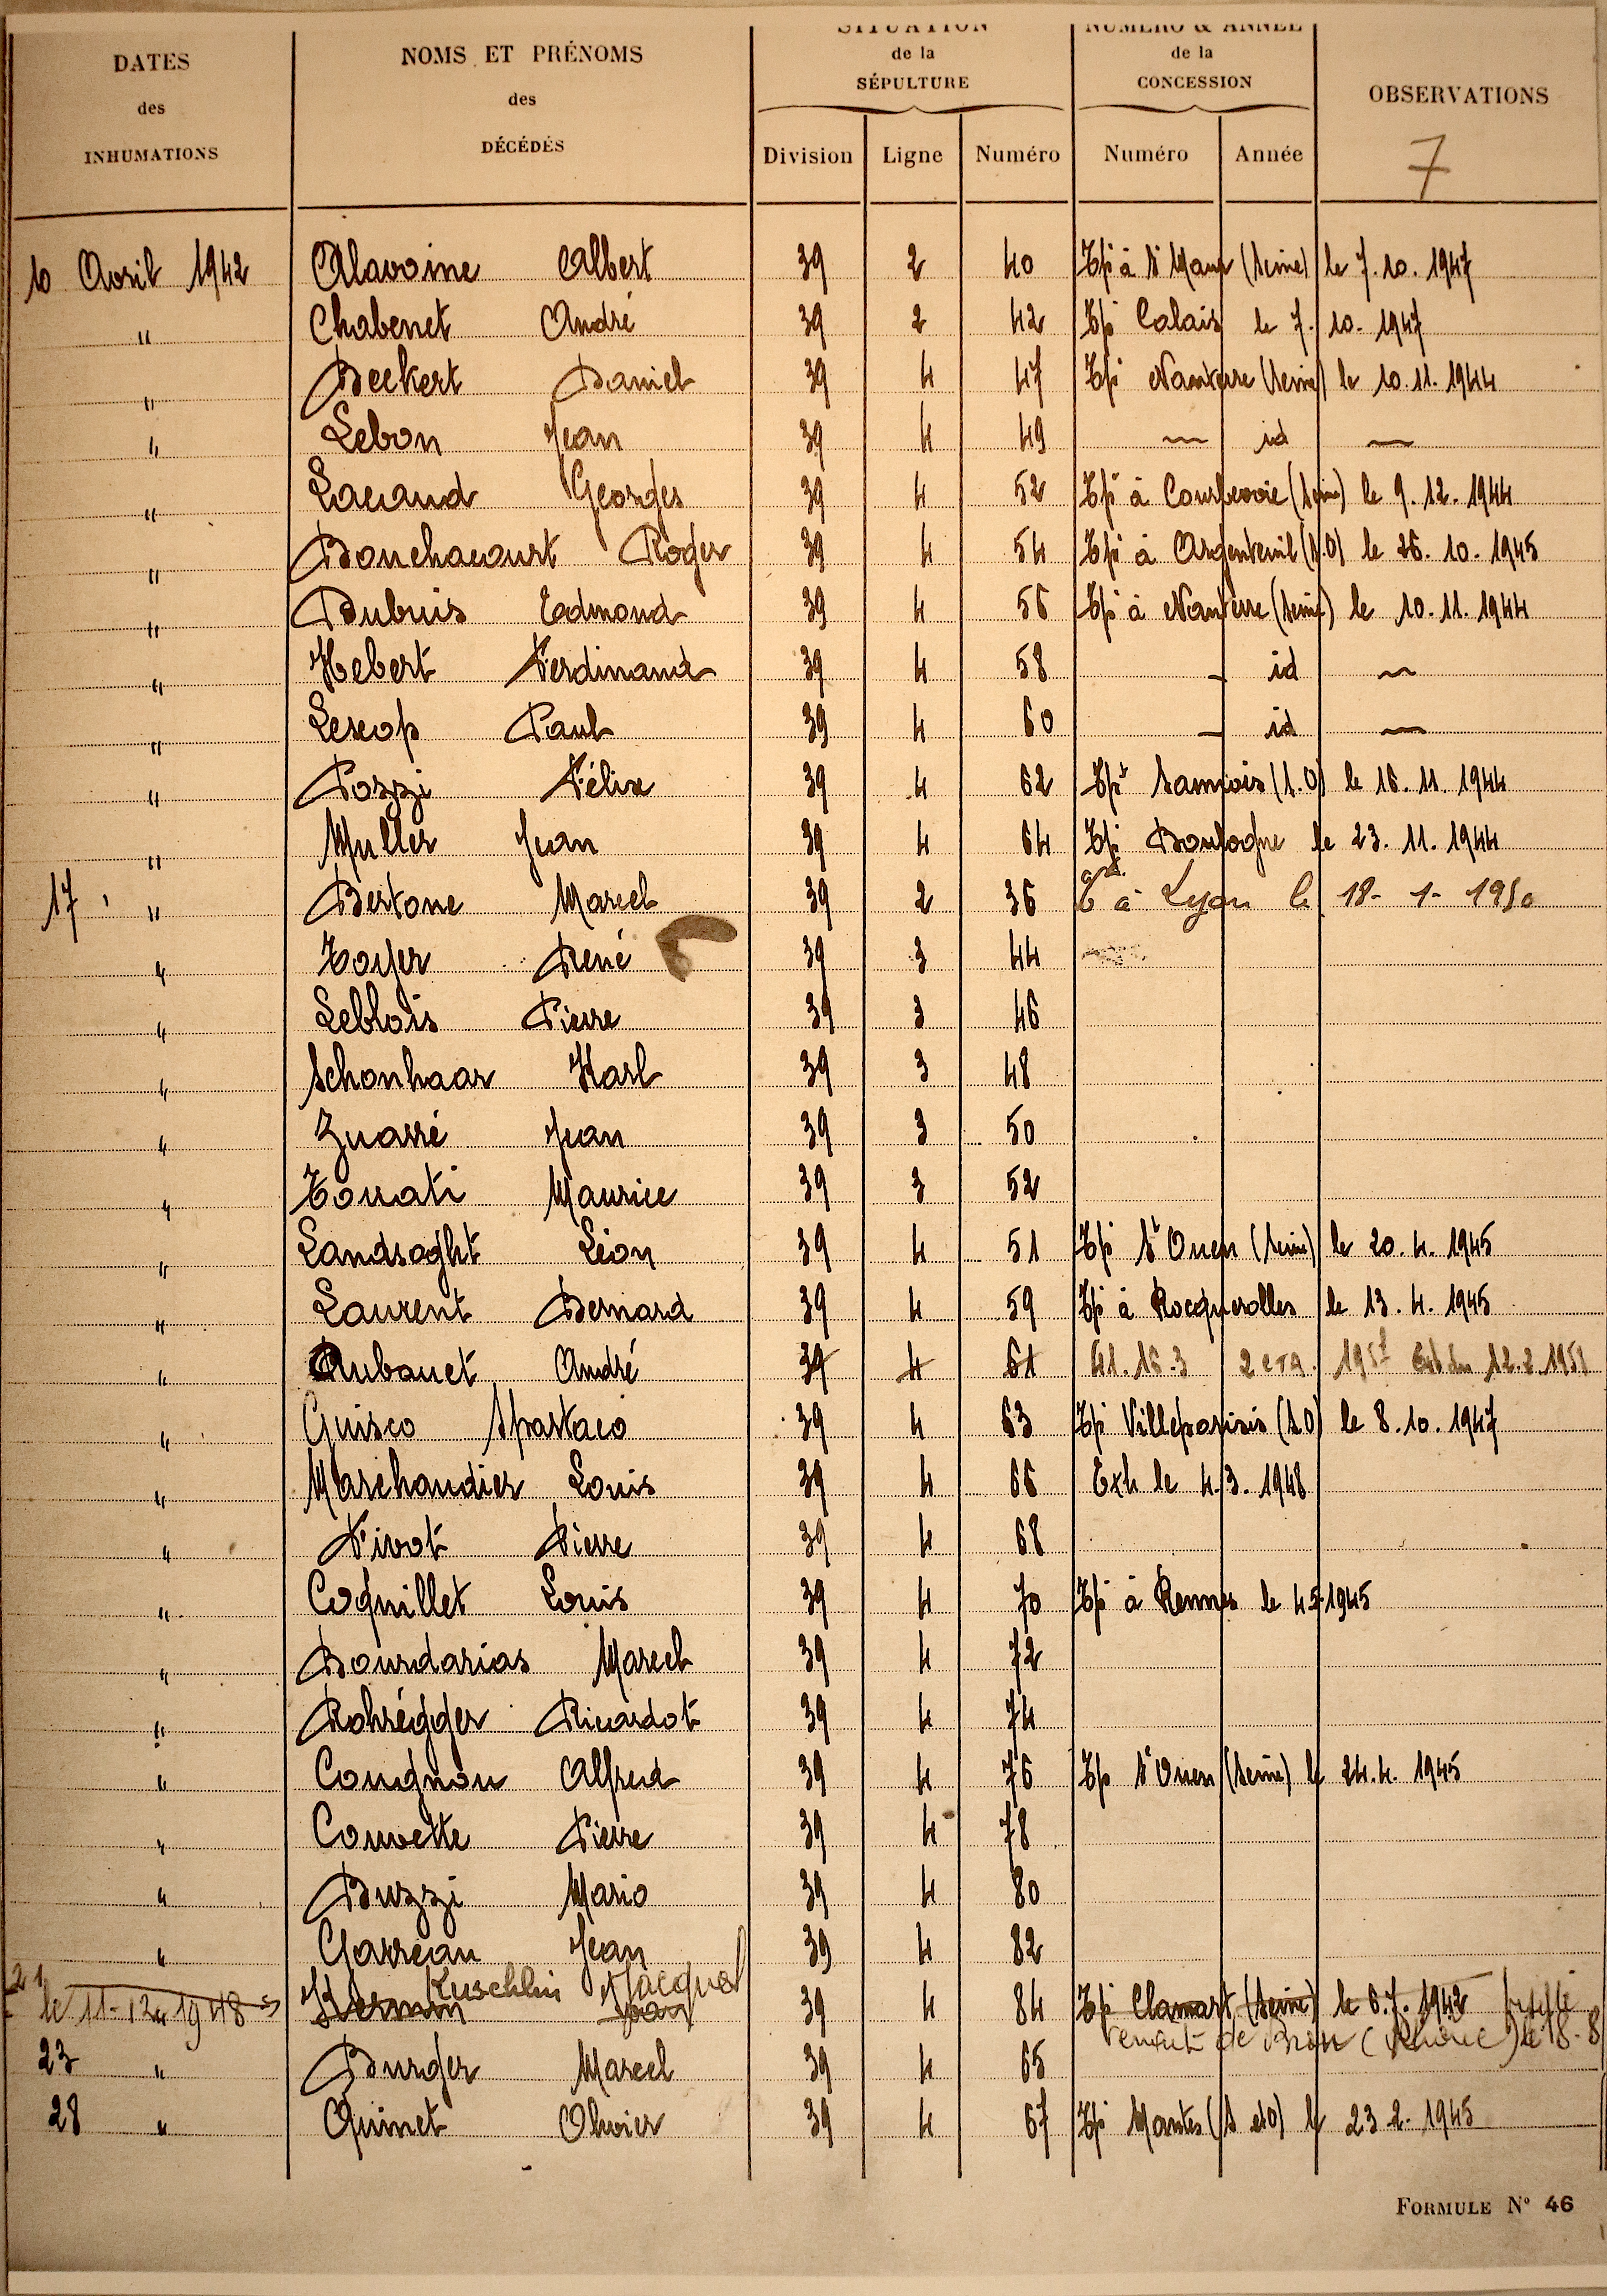 DATES des INHUMATIONS
NOMS ET PRÉNOMS des DÉCÉDÉS
SITUATION de la SÉPULTURE
NUMÉRO & ANNÉE de la CONCESSION
OBSERVATIONS
Division Ligne Numéro Numéro Année
7
10 Avril 1942 Alavoine Albert 39 2 40 Tpé à St Maur (Seine) le 7.10.1947
" Chabenet André 39 2 42 Tpé Calais le 7.10.1947
" Beckert Daniel 39 4 47 Tpé Nanterre (Seine) le 10.11.1944
" Lebon Jean 39 4 49 — id —
" Lacaud Georges 39 4 52 Tpé à Courbevoie (Seine) le 9.12.1944
" Bouchacourt Roger 39 4 54 Tpé à Argenteuil (S.O) le 26.10.1945
" Dubuis Edmond 39 4 56 Tpé à Nanterre (Seine) le 10.11.1944
" Hebert Ferdinand 39 4 58 — id —
" Lescop Paul 39 4 60 — id —
" Pozzi Félix 39 4 62 Tpé Sannois (S.O) le 16.11.1944
" Muller Jean 39 4 64 Tpé Boulogne le 23.11.1944
17 " Bertone Marcel 39 2 36 à Lyon le 18-1-1950
" Toyer René 39 3 44
" Leblois Pierre 39 3 46
" Schonhaar Karl 39 3 48
" Quarré Jean 39 3 50
" Touati Maurice 39 3 52
" Landsoght Léon 39 4 51 Tpé St Ouen (Seine) le 20.4.1945
" Laurent Bernard 39 4 59 Tpé à Rocquerolles le 13.4.1945
" Aubouet André 39 4 61 41.16.3 12.2.1951
" Guisco Spartaco 39 4 63 Tpé Villeparisis (S.O) le 8.10.1947
" Marchandier Louis 39 4 66 Exh le 4.3.1948
" Tirot Pierre 39 4 68
" Coquillet Louis 39 4 70 Tpé à Rennes le 4.5.1945
" Bourdarias Marcel 39 4 72
" Rohrégger Ricardot 39 4 74
" Cougnon Alfred 39 4 76 Tpé St Ouen (Seine) le 24.4.1945
" Couvette Pierre 39 4 78
" Buzzi Mario 39 4 80
" Garreau Jean 39 4 82
21 Kuschlin Jacques
le 11-12-1948 Kerman Jean 39 4 84 Tpé Clamart (Seine) le 6.7.1942
de Bron (Rhône) le 18-8
23 " Burger Marcel 39 4 65
28 " Quinet Olivier 39 4 67 Tpé Mantes (S et O) le 23.2.1945
FORMULE N° 46